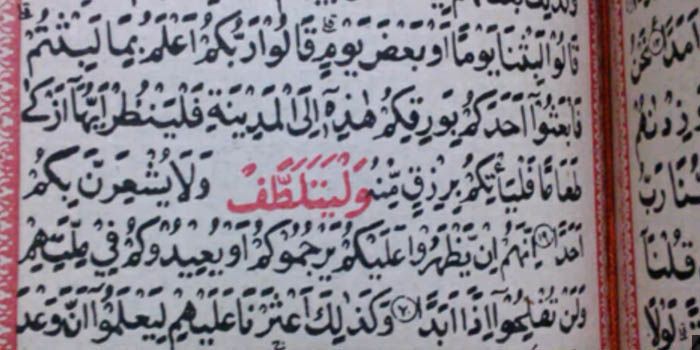 قَالُوا لَبِثْنَا يَوْمًا اَوْ بَعْضَ يَوْمٍ قَالُوا رَبُّكُمْ اَعْلَمُ بِمَا لَبِثْتُمْ
فَابْعَثُوٓا اَحَدَكُمْ بِوَرِقِكُمْ هٰذِهٖٓ اِلَى الْمَدٖينَةِ فَلْيَنْظُرْ اَيُّهَٓا اَزْكٰى
طَعَامًا فَلْيَأْتِكُمْ بِرِزْقٍ مِنْهُ وَلْيَتَلَطَّفْ وَلَا يُشْعِرَنَّ بِكُمْ
اَحَدًا ١٩ اِنَّهُمْ اِنْ يَظْهَرُوا عَلَيْكُمْ يَرْجُمُوكُمْ اَوْ يُعٖيدُوكُمْ فٖي مِلَّتِهِمْ
وَلَنْ تُفْلِحُوٓا اِذًا اَبَدًا ٢٠ وَكَذٰلِكَ اَعْثَرْنَا عَلَيْهِمْ لِيَعْلَمُوٓا اَنَّ وَعْدَ
نَحْنُ
قُلْنَٓا
لَوْلَا